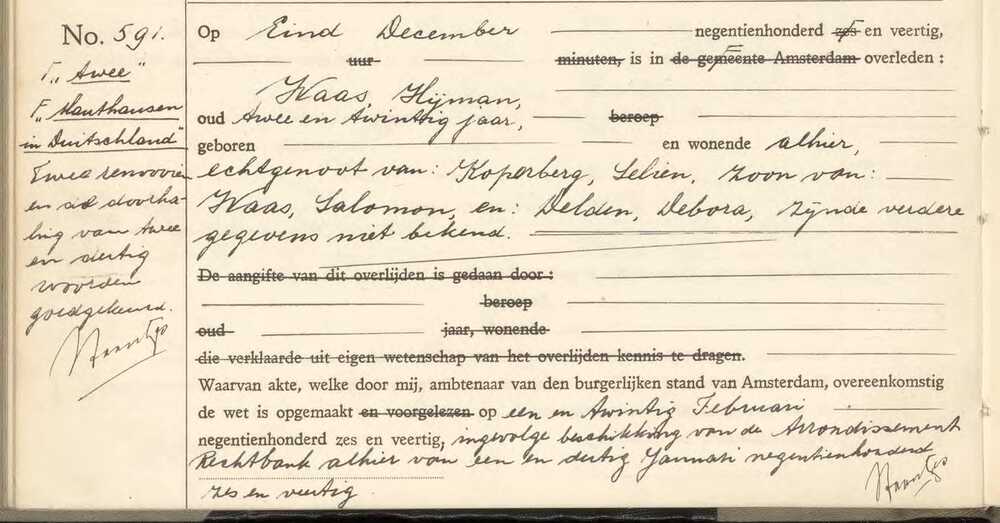 No. 591.
Γ „twee"
F „Mauthausen
in Duitschland"
Twee renvooien
en de doorha-
ling van twee
en dertig
woorden
goedgekeurd.
Op Eind December negentienhonderd zes en veertig,
uur minuten, is in de gemeente Amsterdam overleden :
Haas, Hijman,
oud twee en twintig jaar, beroep
geboren en wonende alhier,
echtgenoot van: Koperberg, Selien, zoon van:
Haas, Salomon, en: Delden, Debora, zijnde verdere
gegevens niet bekend.
De aangifte van dit overlijden is gedaan door :
beroep
oud jaar, wonende
die verklaarde uit eigen wetenschap van het overlijden kennis te dragen.
Waarvan akte, welke door mij, ambtenaar van den burgerlijken stand van Amsterdam, overeenkomstig
de wet is opgemaakt en voorgelezen op een en twintig Februari
negentienhonderd zes en veertig, ingevolge beschikking van de Arrondissement
Rechtbank alhier van een en dertig Januari negentienhonderd
zes en veertig.